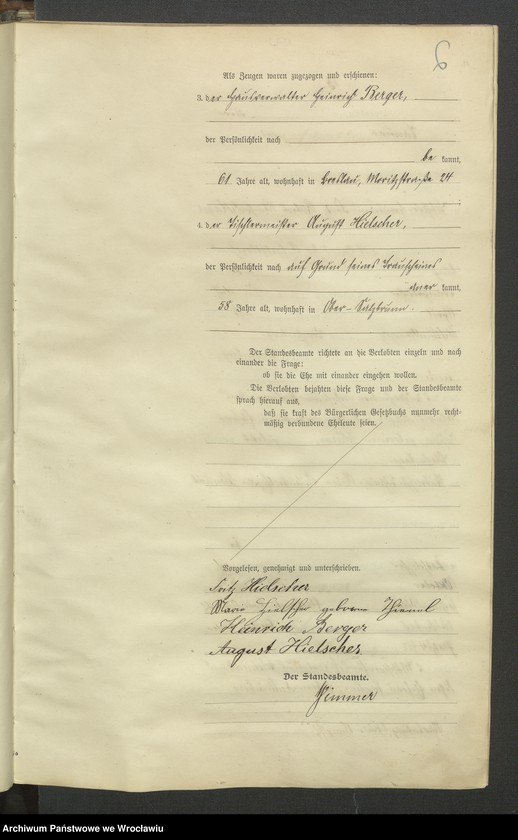 6
Als Zeugen waren zugezogen und erschienen:
3. der Hausverwalter Heinrich Berger,
der Persönlichkeit nach
be kannt,
61 Jahre alt, wohnhaft in Breslau, Moritzstraße 24
4. der Tischlermeister August Hielscher,
der Persönlichkeit nach auf Grund seines Trauscheines
aner kannt,
58 Jahre alt, wohnhaft in Ober-Salzbrunn.
Der Standesbeamte richtete an die Verlobten einzeln und nach
einander die Frage:
ob sie die Ehe mit einander eingehen wollen.
Die Verlobten bejahten diese Frage und der Standesbeamte
sprach hierauf aus,
daß sie kraft des Bürgerlichen Gesetzbuchs nunmehr recht-
mäßig verbundene Eheleute seien.
Vorgelesen, genehmigt und unterschrieben.
Fritz Hielscher
Marie Hielscher geborene
Heinrich Berger
August Hielscher
Der Standesbeamte.
Wimmer
Archiwum Państwowe we Wrocławiu